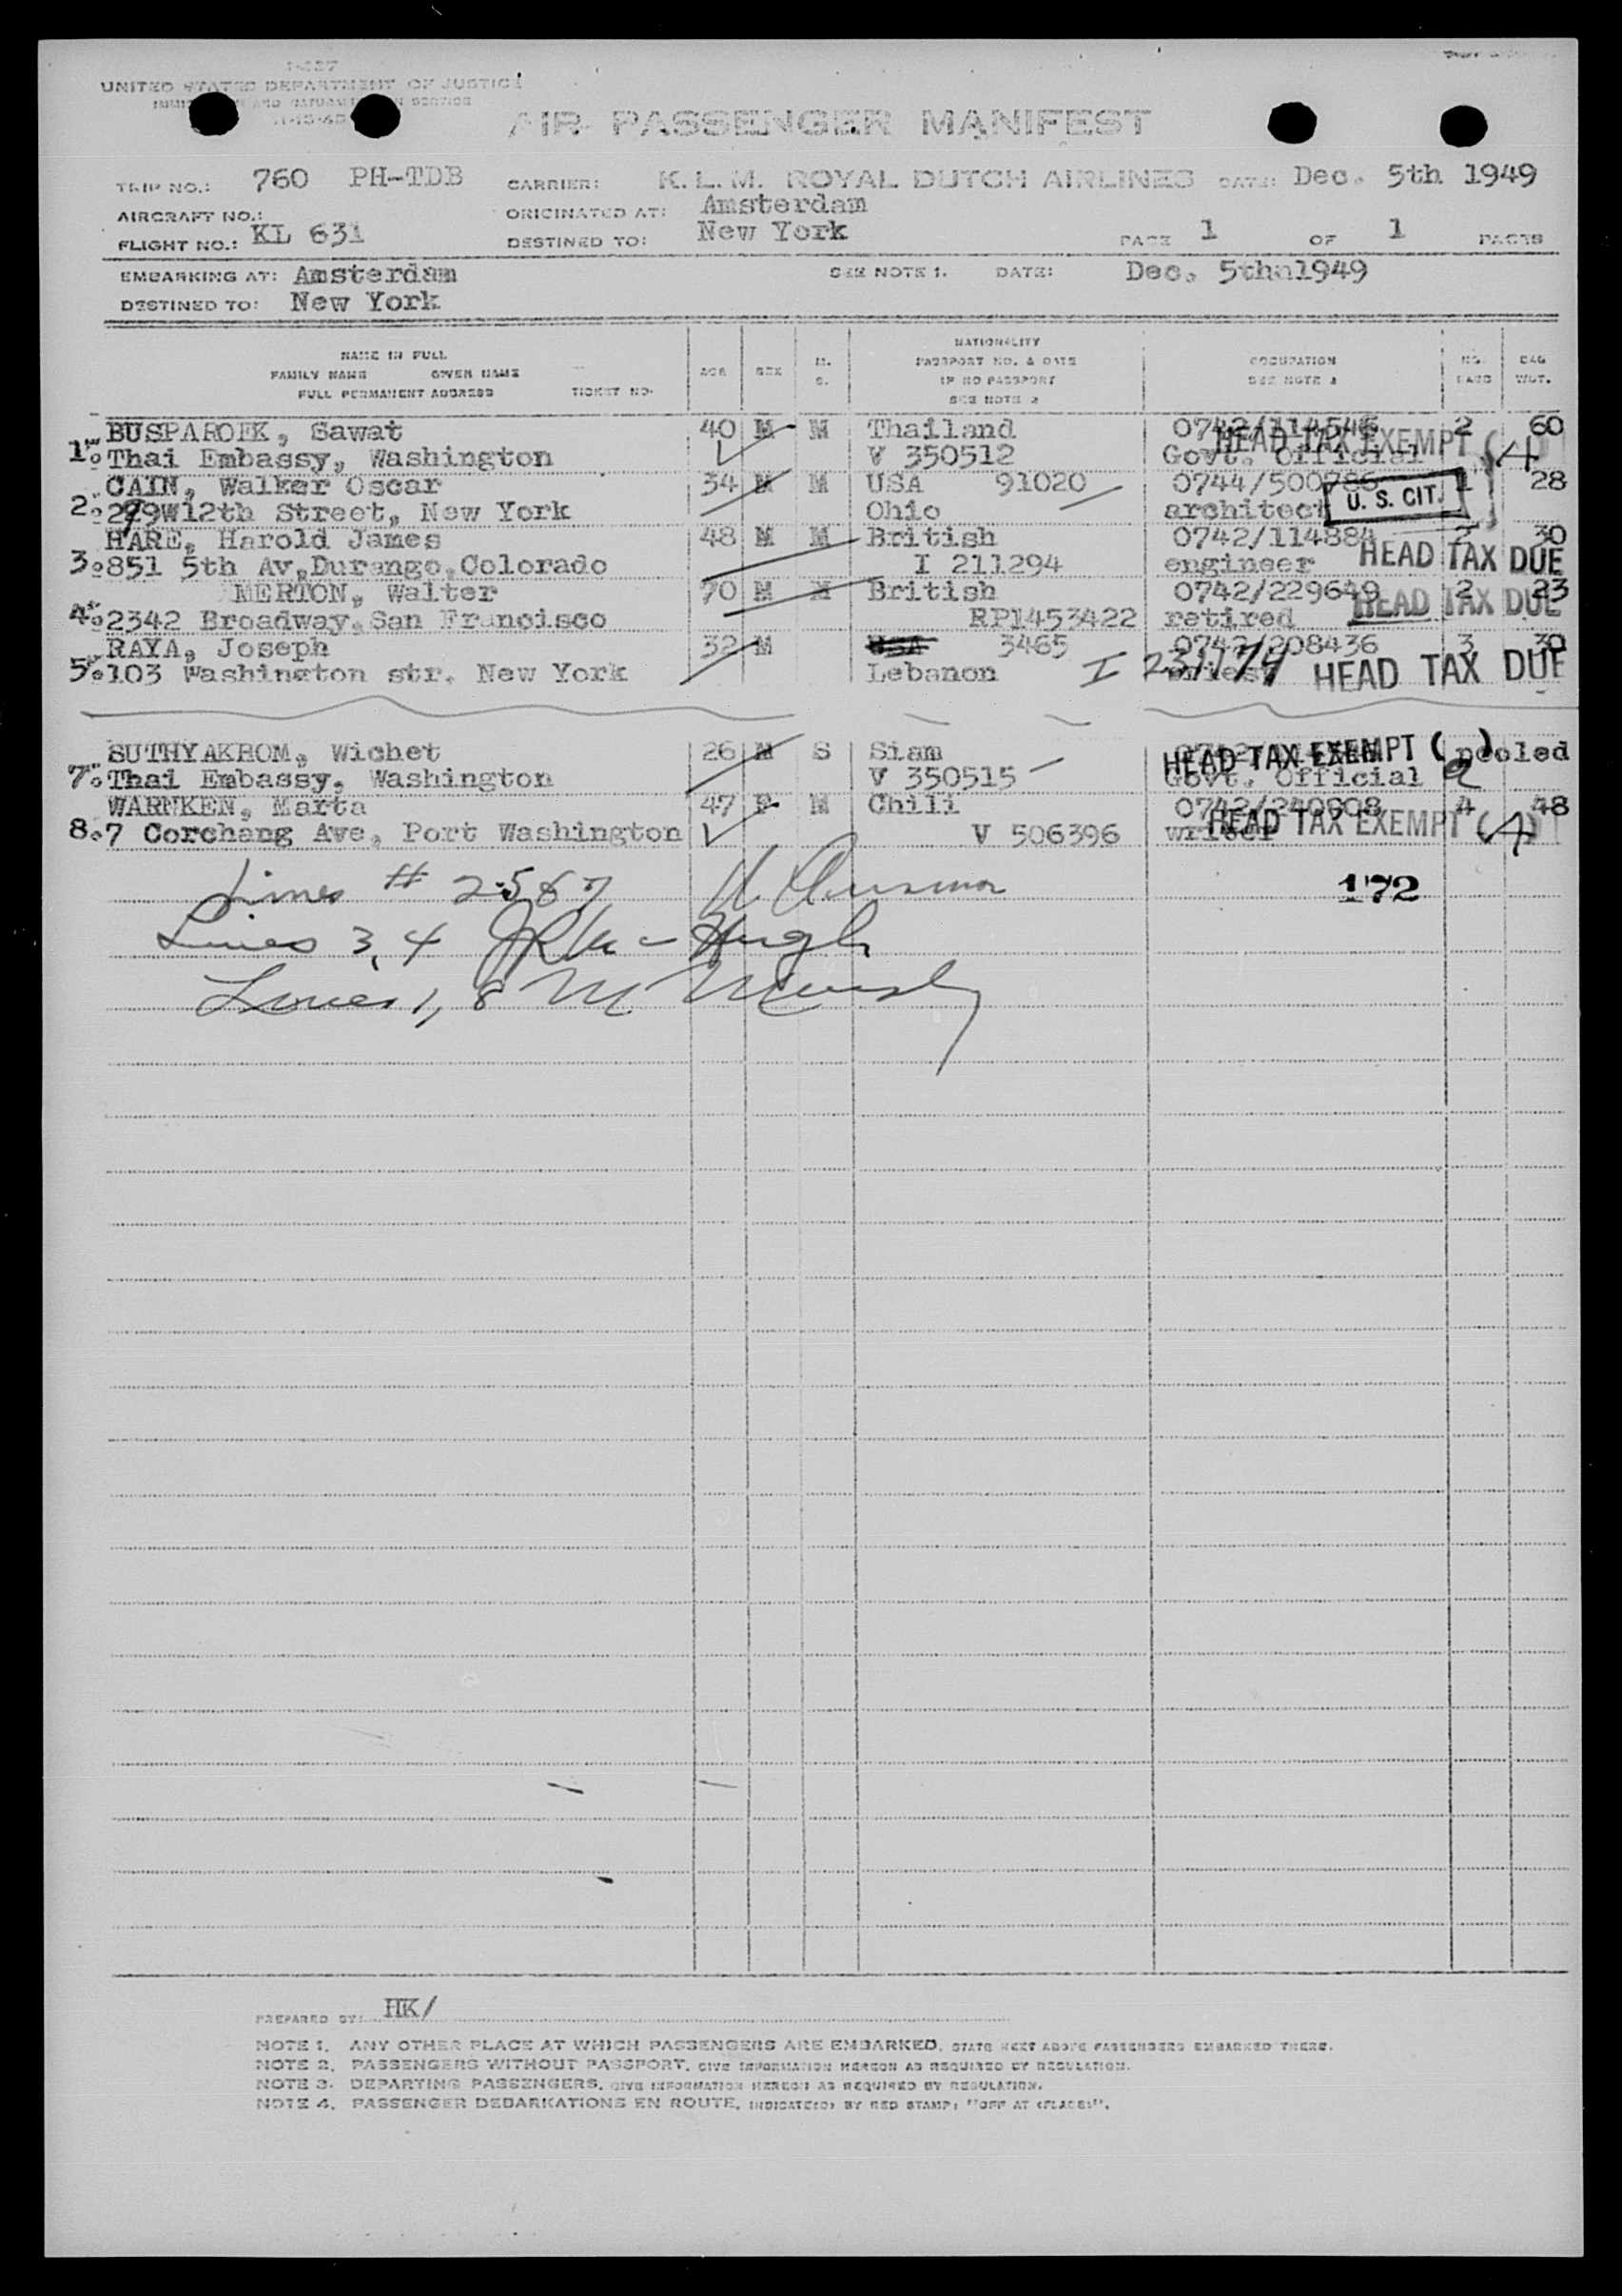 I-457
UNITED STATES DEPARTMENT OF JUSTICE
AIR PASSENGER MANIFEST
TRIP NO.: 760 PH-TDB CARRIER: K.L.M. ROYAL DUTCH AIRLINES DATE: Dec. 5th 1949
AIRCRAFT NO.: ORIGINATED AT: Amsterdam
FLIGHT NO.: KL 631 DESTINED TO: New York PAGE 1 OF 1 PAGES
EMBARKING AT: Amsterdam SEE NOTE 1. DATE: Dec. 5thn1949
DESTINED TO: New York
NAME IN FULL
FAMILY NAME GIVEN NAME
FULL PERMANENT ADDRESS TICKET NO.
AGE
SEX
M.
S.
NATIONALITY
PASSPORT NO. & DATE
IF NO PASSPORT
SEE NOTE 2
OCCUPATION
SEE NOTE 3
NO.
BAGS
BAG
WGT.
BUSPAROEK, Sawat 40 M M Thailand 0742/114546 2 60
1. Thai Embassy, Washington V 350512 Govt. Official
HEAD TAX EXEMPT (A)
CAIN, Walker Oscar 34 M M USA 91020 0744/500786 1 28
2. 279W12th Street, New York Ohio architect
U. S. CIT.
HARE, Harold James 48 M M British 0742/114884 2 30
3. 851 5th Av,Durango,Colorado I 211294 engineer HEAD TAX DUE
MERTON, Walter 70 M M British 0742/229649 2 23
4. 2342 Broadway,San Francisco RP1453422 retired HEAD TAX DUE
RAYA, Joseph 32 M USA 3465 0742/208436 3 30
5. 103 Washington str. New York Lebanon I 231174 priest HEAD TAX DUE
SUTHYAKROM, Wichet 26 M S Siam pooled
HEAD TAX EXEMPT (a)
7. Thai Embassy, Washington V 350515 Govt. Official
WARNKEN, Marta 47 F M Chili 0742/240808 4 48
8. 7 Corchang Ave, Port Washington V 506396 writer
HEAD TAX EXEMPT (A)
Lines # 2-5 6 7 172
Lines 3, 4
Lines 1, 8
PREPARED BY: HK/
NOTE 1. ANY OTHER PLACE AT WHICH PASSENGERS ARE EMBARKED, STATE NEXT ABOVE PASSENGERS EMBARKED THERE.
NOTE 2. PASSENGERS WITHOUT PASSPORT, GIVE INFORMATION HEREON AS REQUIRED BY REGULATION.
NOTE 3. DEPARTING PASSENGERS, GIVE INFORMATION HEREON AS REQUIRED BY REGULATION.
NOTE 4. PASSENGER DEBARKATIONS EN ROUTE, INDICATE(D) BY RED STAMP: "OFF AT (PLACE)".